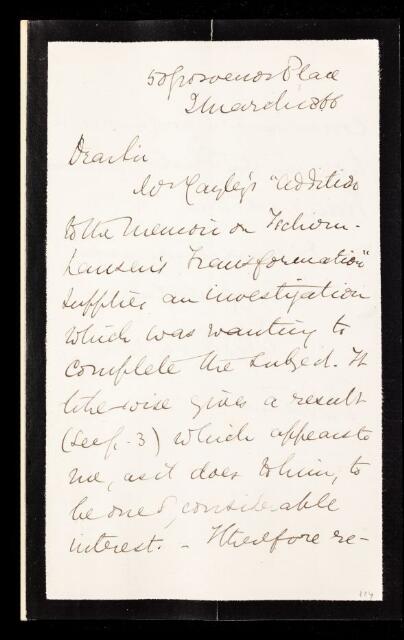 5 Grosvenor Place
2 March 1866
Dear Sir
Mr Cayley's "Addition
to the Memoir on Tschirn-
hausen's Transformation"
supplies an investigation
which was wanting to
complete the subject. It
likewise gives a result
(see p. 3) which appears to
me, as it does to him, to
be one of considerable
interest. - I therefore re-